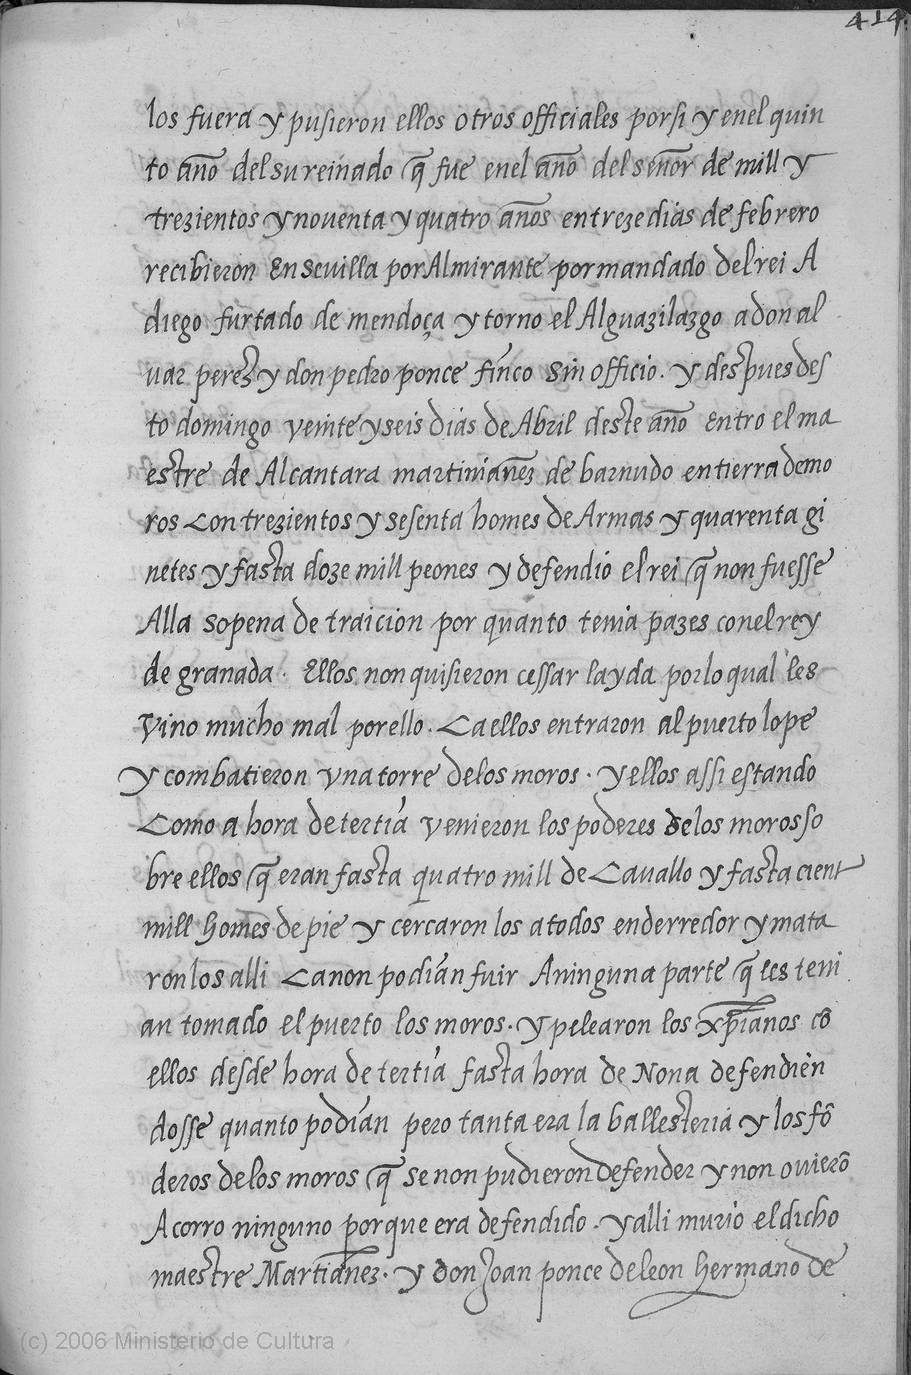 414
los fuera y pusieron ellos otros officiales porsi y enel quin
to año del su reinado q̃ fue enel año del señor de mill y
trezientos y noventa y quatro años entreze dias de febrero
recibieron En Sevilla por Almirante por mandado del rei A
diego furtado de mendoça y torno el Alguazilazgo a don al
uar perez y don pedro ponce finco sin officio. y despues des
to domingo veinte y seis dias de Abril deste año Entro el ma
estre de Alcantara martiniañez de barnudo en tierra de mo
ros Con trezientos y sesenta homes de Armas y quarenta gi
netes y fasta doze mill peones y defendio el rei q̃ non fuesse
Alla so pena de traicion por quanto tenia pazes conel rey
de granada. Ellos non quisieron cessar la yda por lo qual les
Vino mucho mal por ello. Ca ellos entraron al puerto lope
y combatieron vna torre delos moros. y ellos assi estando
Como a hora de tertia venieron los poderes delos moros so
bre ellos q̃ eran fasta quatro mill de Cauallo y fasta cient
mill homes de pie y cercaron los atodos enderredor y mata
ron los alli Ca non podian fuir A ninguna parte q̃ les teni
an tomado el puerto los moros. y pelearon los xp̃ianos cõ
ellos desde hora de tertia fasta hora de Nona defendien
dosse quanto podian pero tanta era la ballesteria y los fõ
deros delos moros q̃ se non pudieron defender y non ovierõ
Acorro ninguno porque era defendido. y alli murio el dicho
maestre Martiañez. y don Joan ponce de leon hermano de
(c) 2006 Ministerio de Cultura